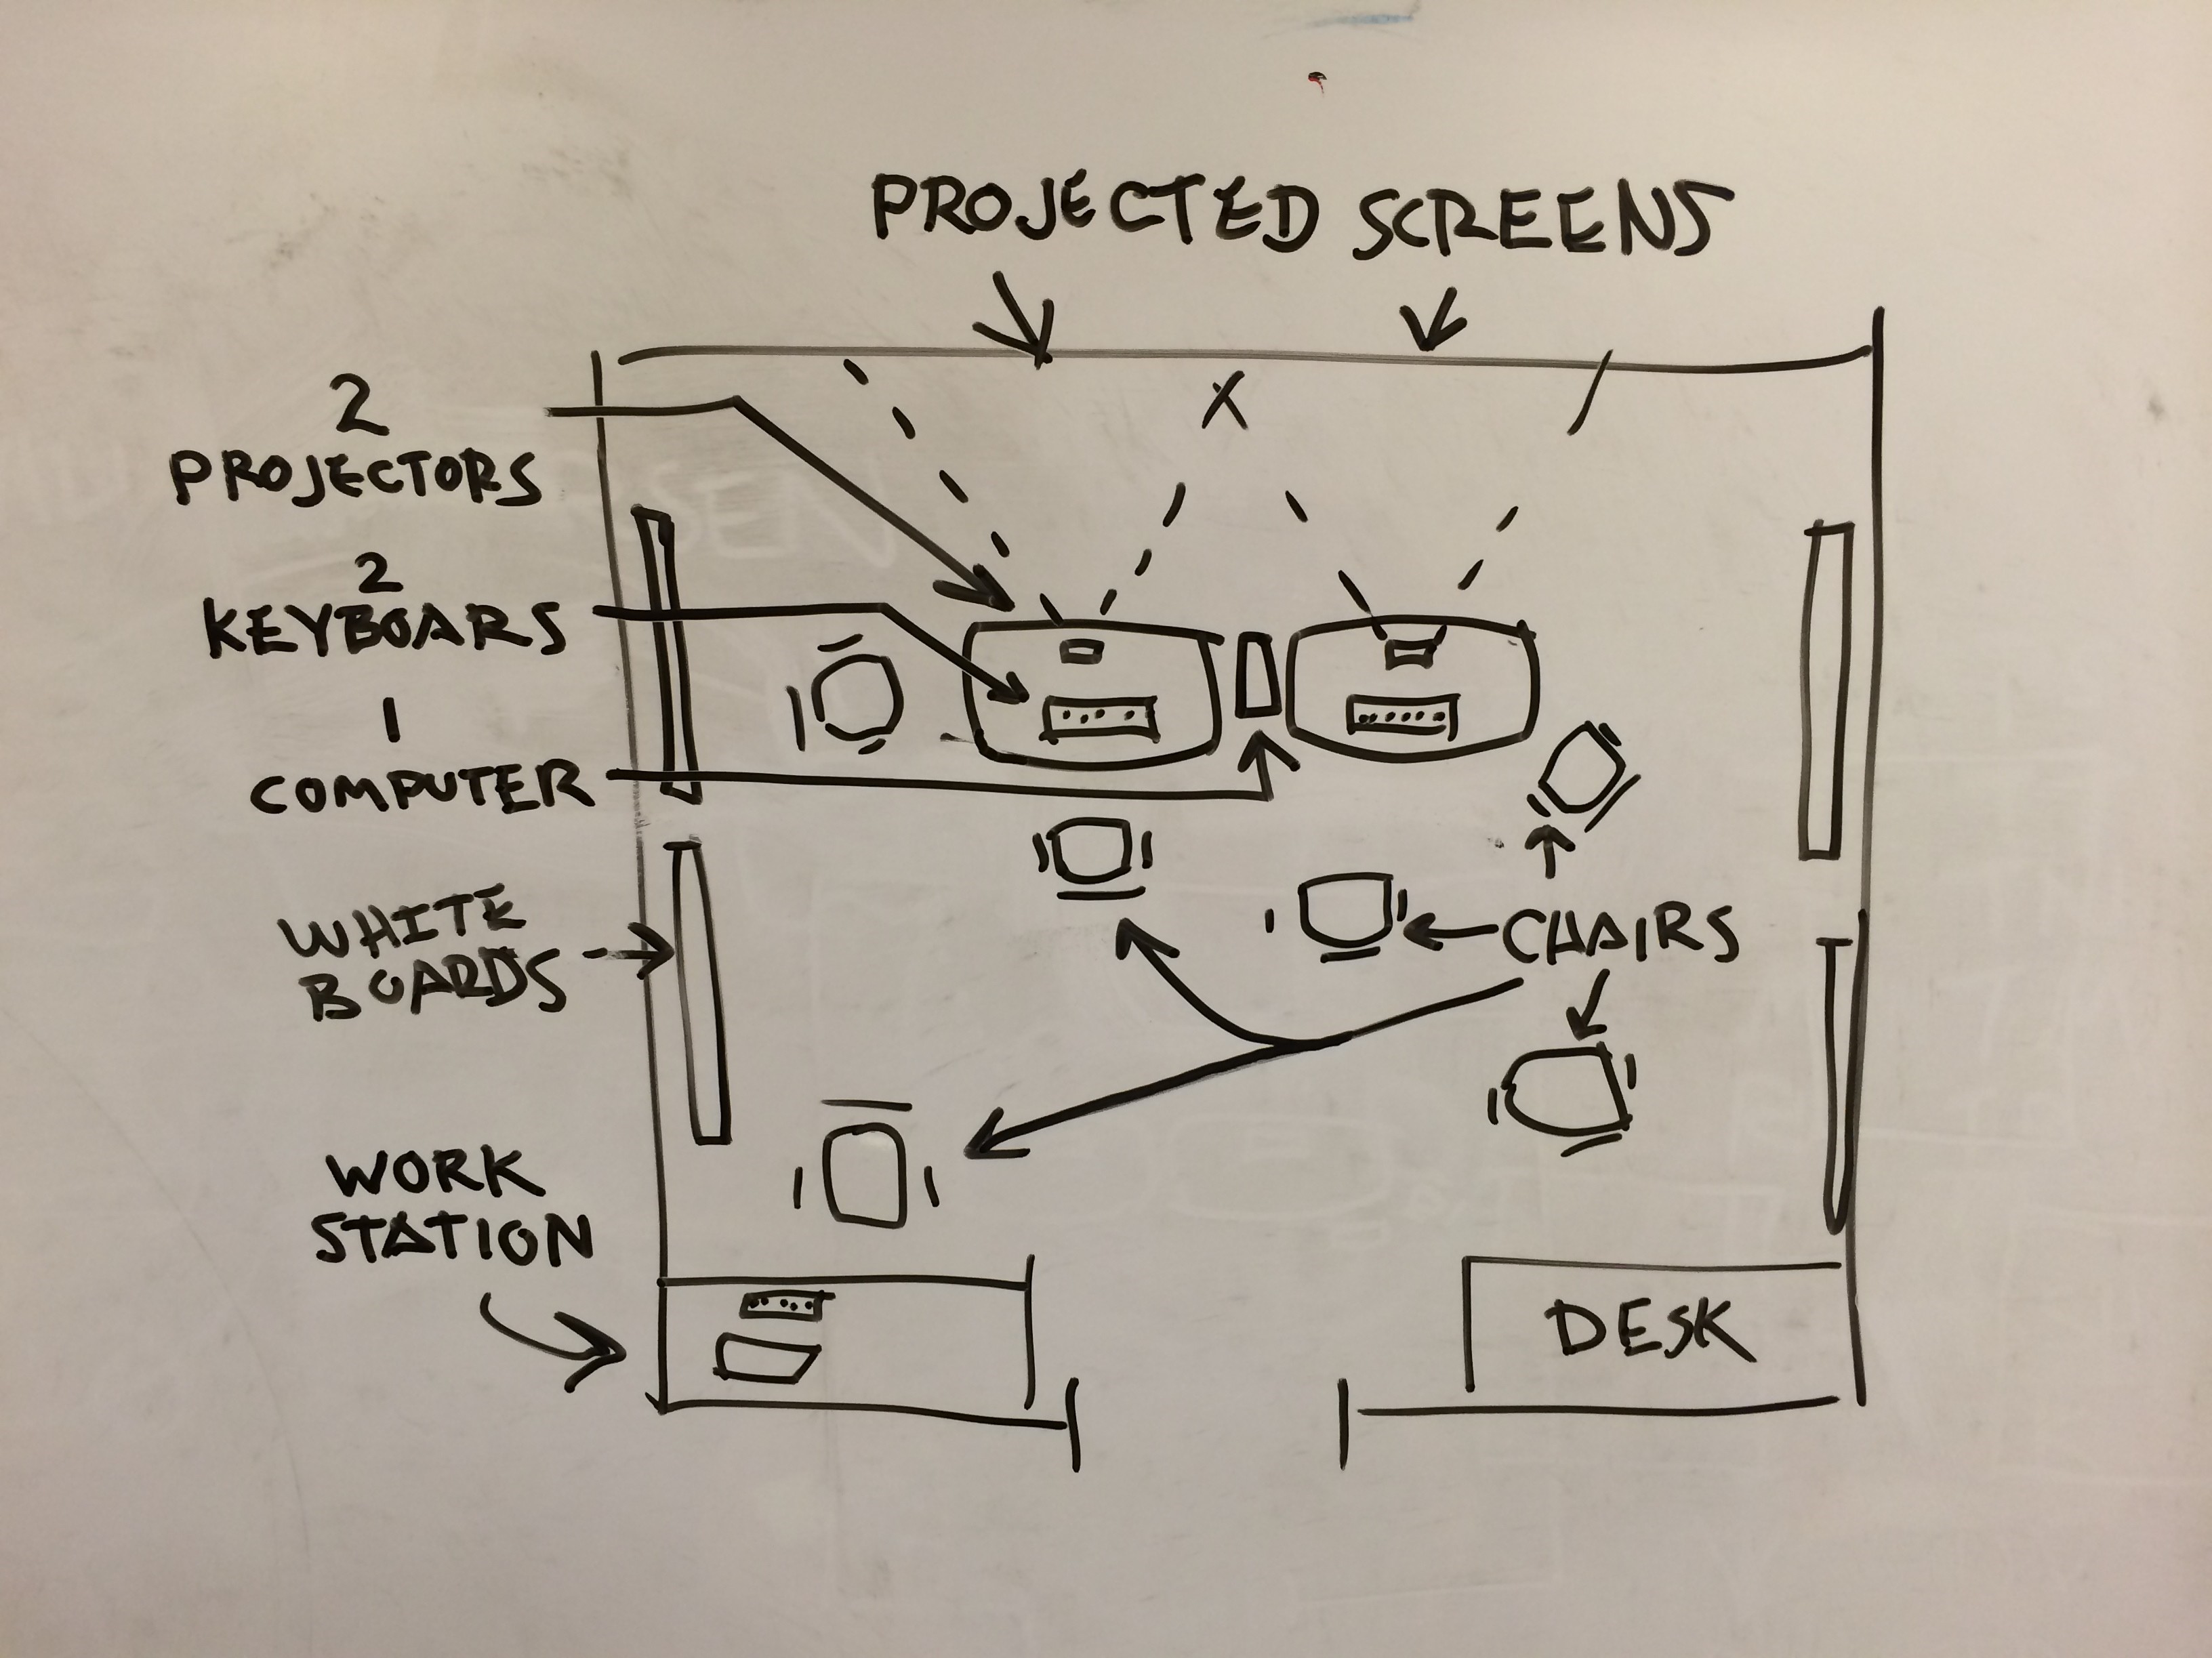 PROJECTED SCREENS
2
PROJECTORS
2
KEYBOARS
1
COMPUTER
WHITE
BOARDS
CHAIRS
WORK
STATION
DESK